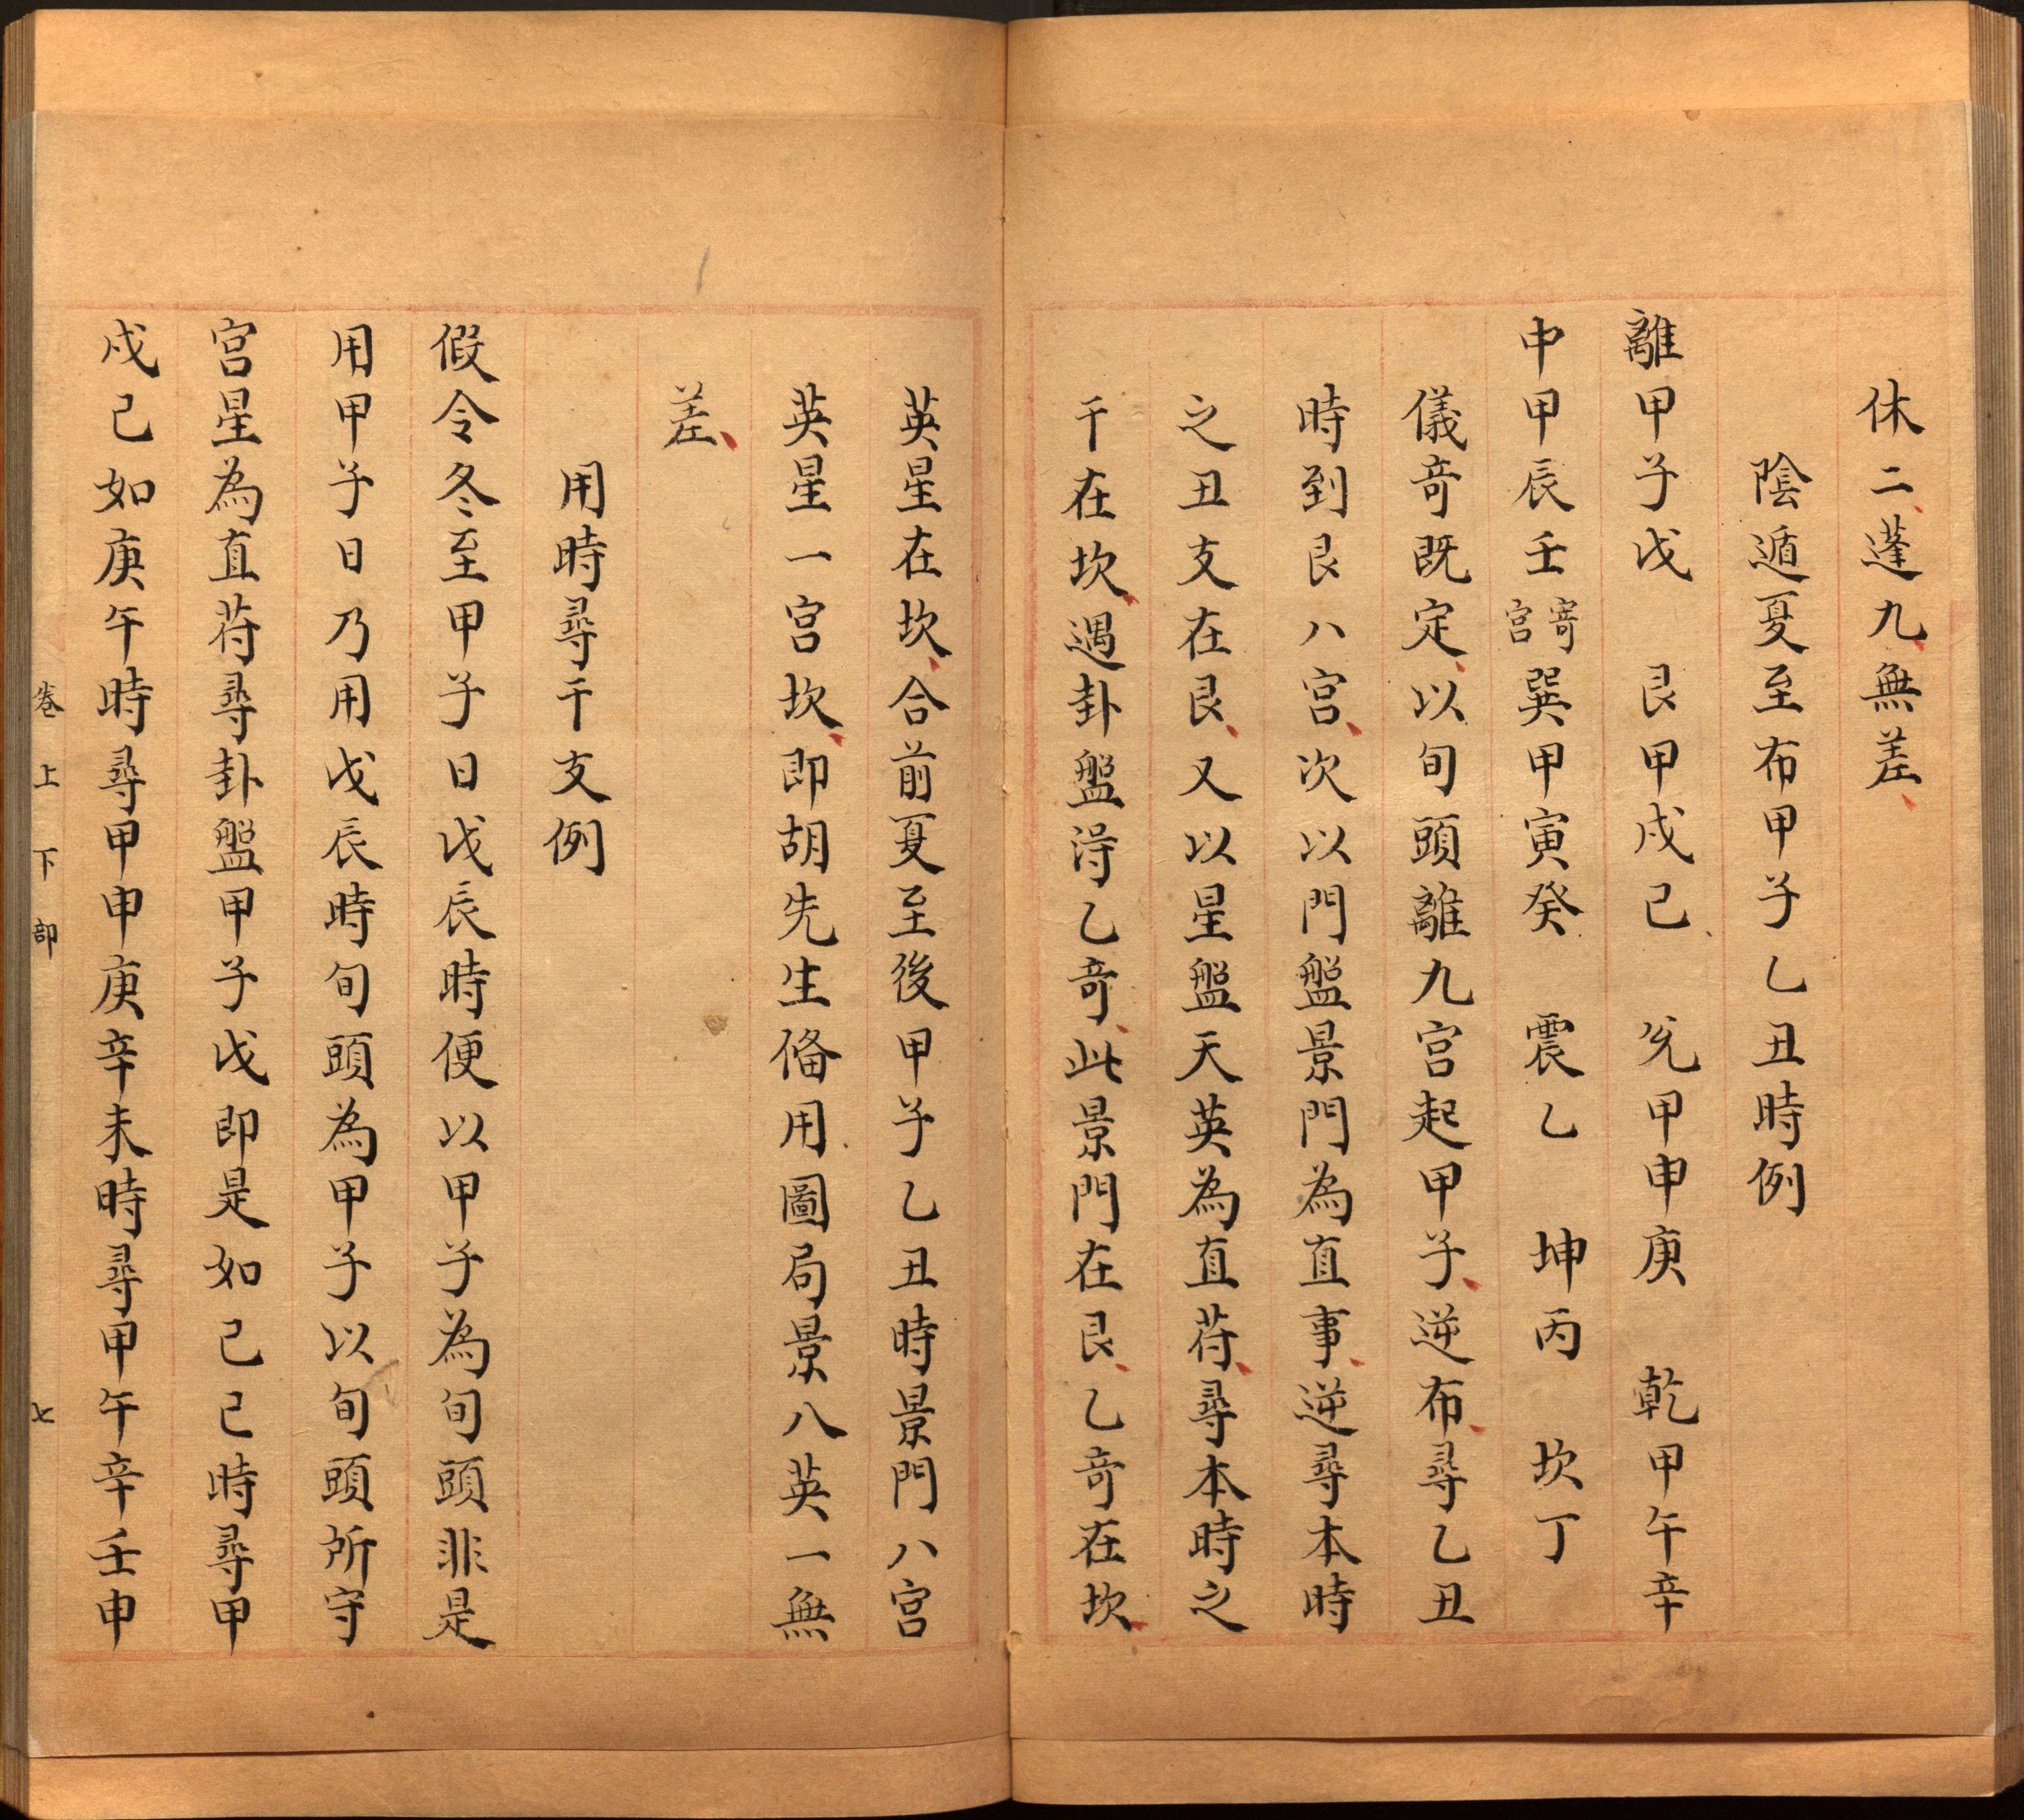 休二、蓬九、無差、
陰遁夏至布甲子乙丑時例
離甲子戊　艮甲戌己　兊甲申庚　乾甲午辛
中甲辰壬寄宫巽甲寅癸　震乙　坤丙　坎丁
儀竒既定、以旬頭離九宫起甲子、逆布、尋乙丑
時到艮八宫、次以門盤景門為直事、逆尋本時
之丑支在艮、又以星盤天英為直苻、尋本時之
干在坎、遇卦盤淂乙竒、此景門在艮、乙竒在坎、
英星在坎、合前夏至後甲子乙丑時景門八宫
英星一宫坎、即胡先生俻用圖局景八英一無
差、
用時尋干支例
假令冬至甲子日戊辰時便以甲子為旬頭非是
用甲子日乃用戊辰時旬頭為甲子以旬頭所守
宫星為直苻尋卦盤甲子戊即是如己巳時尋甲
戌己如庚午時尋甲申庚辛未時尋甲午辛壬申
卷上下部　七